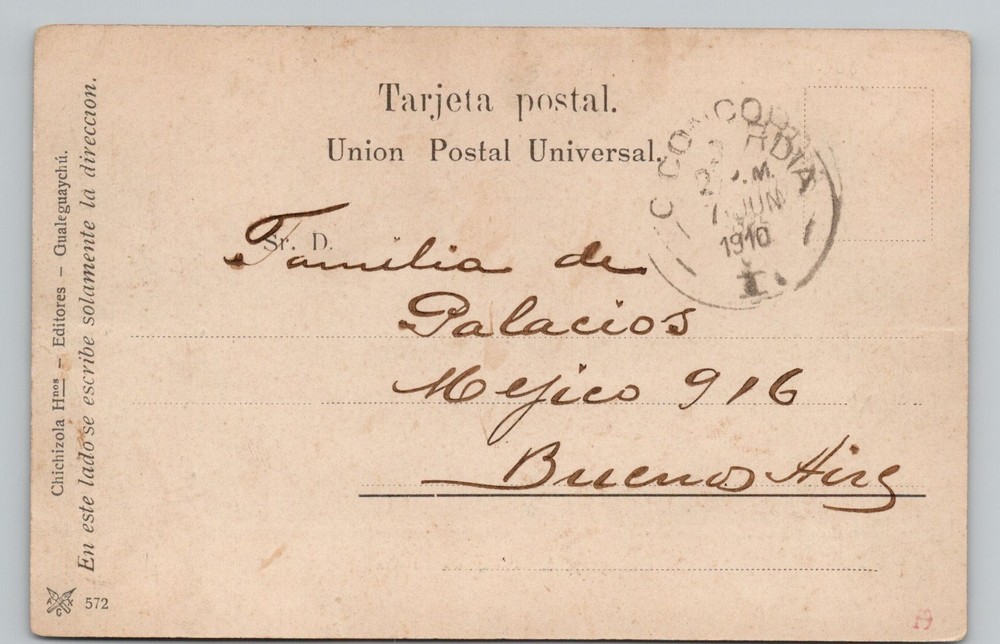 Tarjeta postal.
Union Postal Universal.
CONCORDIA
JUN
1910
Sr. D.
Familia de
Palacios
Mejico 916
Buenos Aires
Chichizola Hnos — Editores — Gualeguaychú.
En este lado se escribe solamente la direccion.
572
19